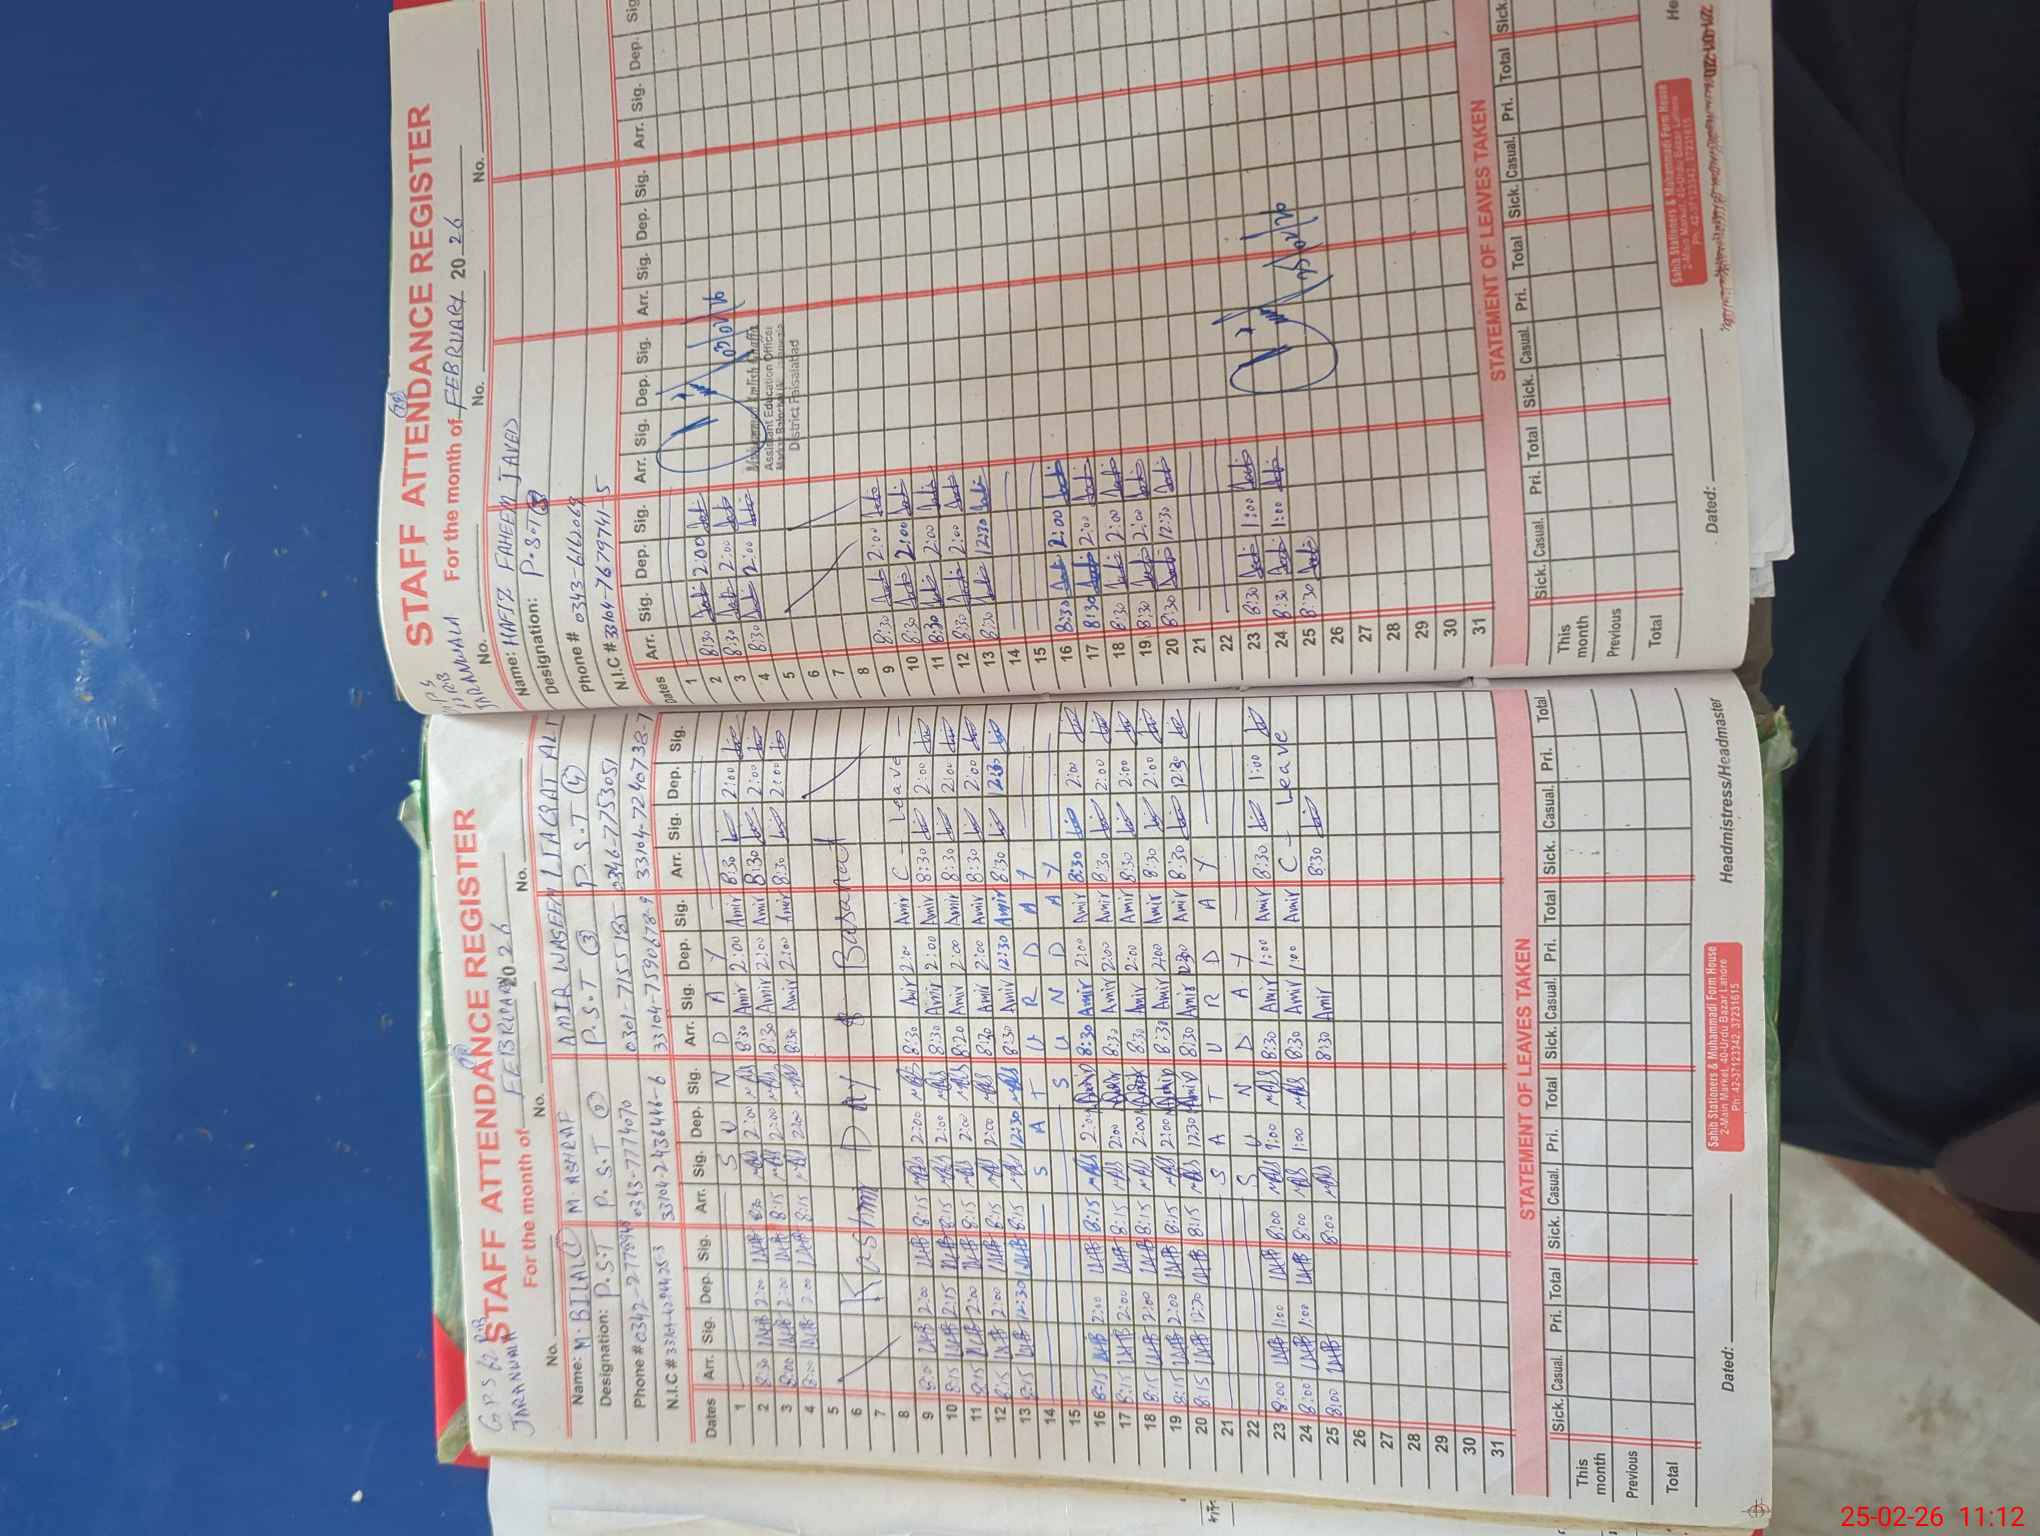 STAFF ATTENDANCE REGISTER
JARANWALA
For the month of FEBRUARY 2026
No. No. No.
Name: M. BILAL (1) M. ASHRAF AMIR WASEEM LIAQAT ALI
Designation: P.S.T P.S.T (2) P.S.T (3) P.S.T (4)
Phone # 0343-7774070 0346-7753051
N.I.C # 33104-2436446-6 33104-7590678-9 33104-7240738-7
Dates Arr. Sig. Dep. Sig. Arr. Sig. Dep. Sig. Arr. Sig. Dep. Sig. Arr. Sig. Dep. Sig.
1 S U N D A Y
2 8:30 2:00 8:30 2:00 8:30 Amir 2:00 Amir 8:30 2:00
3 8:00 2:00 8:15 2:00 8:30 Amir 2:00 Amir 8:30 2:00
4 8:00 2:00 8:15 2:00 8:30 Amir 2:00 Amir 8:30 2:00
5
6 Kashmir Day & Basanat
7
8
9 8:20 2:00 8:15 2:00 8:30 Amir 2:00 Amir C - Leave -
10 8:15 2:15 8:15 2:00 8:30 Amir 2:00 Amir 8:30 2:00
11 8:15 2:00 8:15 2:00 8:20 Amir 2:00 Amir 8:30 2:00
12 8:15 2:00 8:15 2:00 8:20 Amir 2:00 Amir 8:30 2:00
13 8:15 12:30 8:15 12:30 8:30 Amir 12:30 Amir 8:30 12:30
14 S A T U R D A Y
15 S U N D A Y
16 8:15 2:00 8:15 2:00 8:30 Amir 2:00 Amir 8:30 2:00
17 8:15 2:00 8:15 2:00 8:30 Amir 2:00 Amir 8:30 2:00
18 8:15 2:00 8:15 2:00 8:30 Amir 2:00 Amir 8:30 2:00
19 8:15 2:00 8:15 2:00 8:30 Amir 2:00 Amir 8:30 2:00
20 8:15 12:30 8:15 12:30 8:30 Amir 12:30 Amir 8:30 12:30
21 S A T U R D A Y
22 S U N D A Y
23 8:00 1:00 8:00 1:00 8:30 Amir 1:00 Amir 8:30 1:00
24 8:00 1:00 8:00 1:00 8:30 Amir 1:00 Amir C - Leave
25 8:00 8:00 8:30 Amir 8:30
26
27
28
29
30
31
STATEMENT OF LEAVES TAKEN
Sick. Casual. Pri. Total Sick. Casual. Pri. Total Sick. Casual. Pri. Total Sick. Casual. Pri. Total
This month
Previous
Total
Sahib Stationers & Muhammadi Form House
2-Main Market, 40-Urdu Bazar Lahore
Ph: 42-37123342, 37231615
Dated: Headmistress/Headmaster
STAFF ATTENDANCE REGISTER
JARANWALA
For the month of FEBRUARY 2026
No. No. No.
Name: HAFIZ FAHEEM JAVED
Designation: P.S.T
Phone # 0343-6162069
N.I.C # 33104-7679741-5
Dates Arr. Sig. Dep. Sig. Arr. Sig. Dep. Sig. Arr. Sig. Dep. Sig. Arr. Sig. Dep. Sig
1
2 8:30 2:00
3 8:30 2:00
4 8:30 2:00
5
6
7
8
9 8:30 2:00
10 8:30 2:00
11 8:30 2:00
12 8:30 2:00
13 8:30 12:30
14
15
16 8:30 2:00
17 8:30 2:00
18 8:30 2:00
19 8:30 2:00
20 8:30 12:30
21
22
23 8:30 1:00
24 8:30 1:00
25 8:30
26
27
28
29
30
31
Assistant Education Officer
District Faisalabad
STATEMENT OF LEAVES TAKEN
Sick. Casual. Pri. Total Sick. Casual Pri. Total Sick. Casual. Pri. Total Sick.
This month
Previous
Total
Sahib Stationers & Muhammadi Form House
2-Main Market, 40-Urdu Bazar Lahore
Ph: 42-37123342, 37231615
Dated: He
25-02-26 11:12